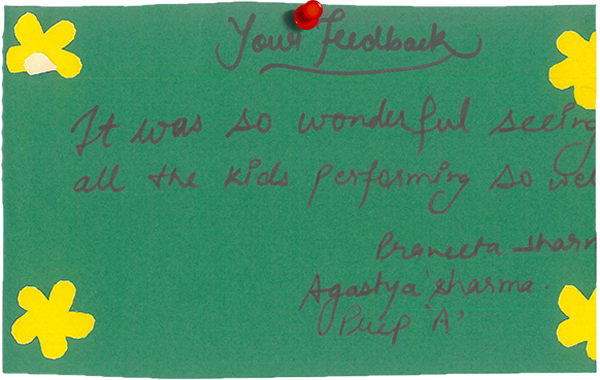 Your feedback
It was so wonderful seeing
all the kids performing so wel
Praneeta Sharm
Agastya Sharma.
Prep 'A'